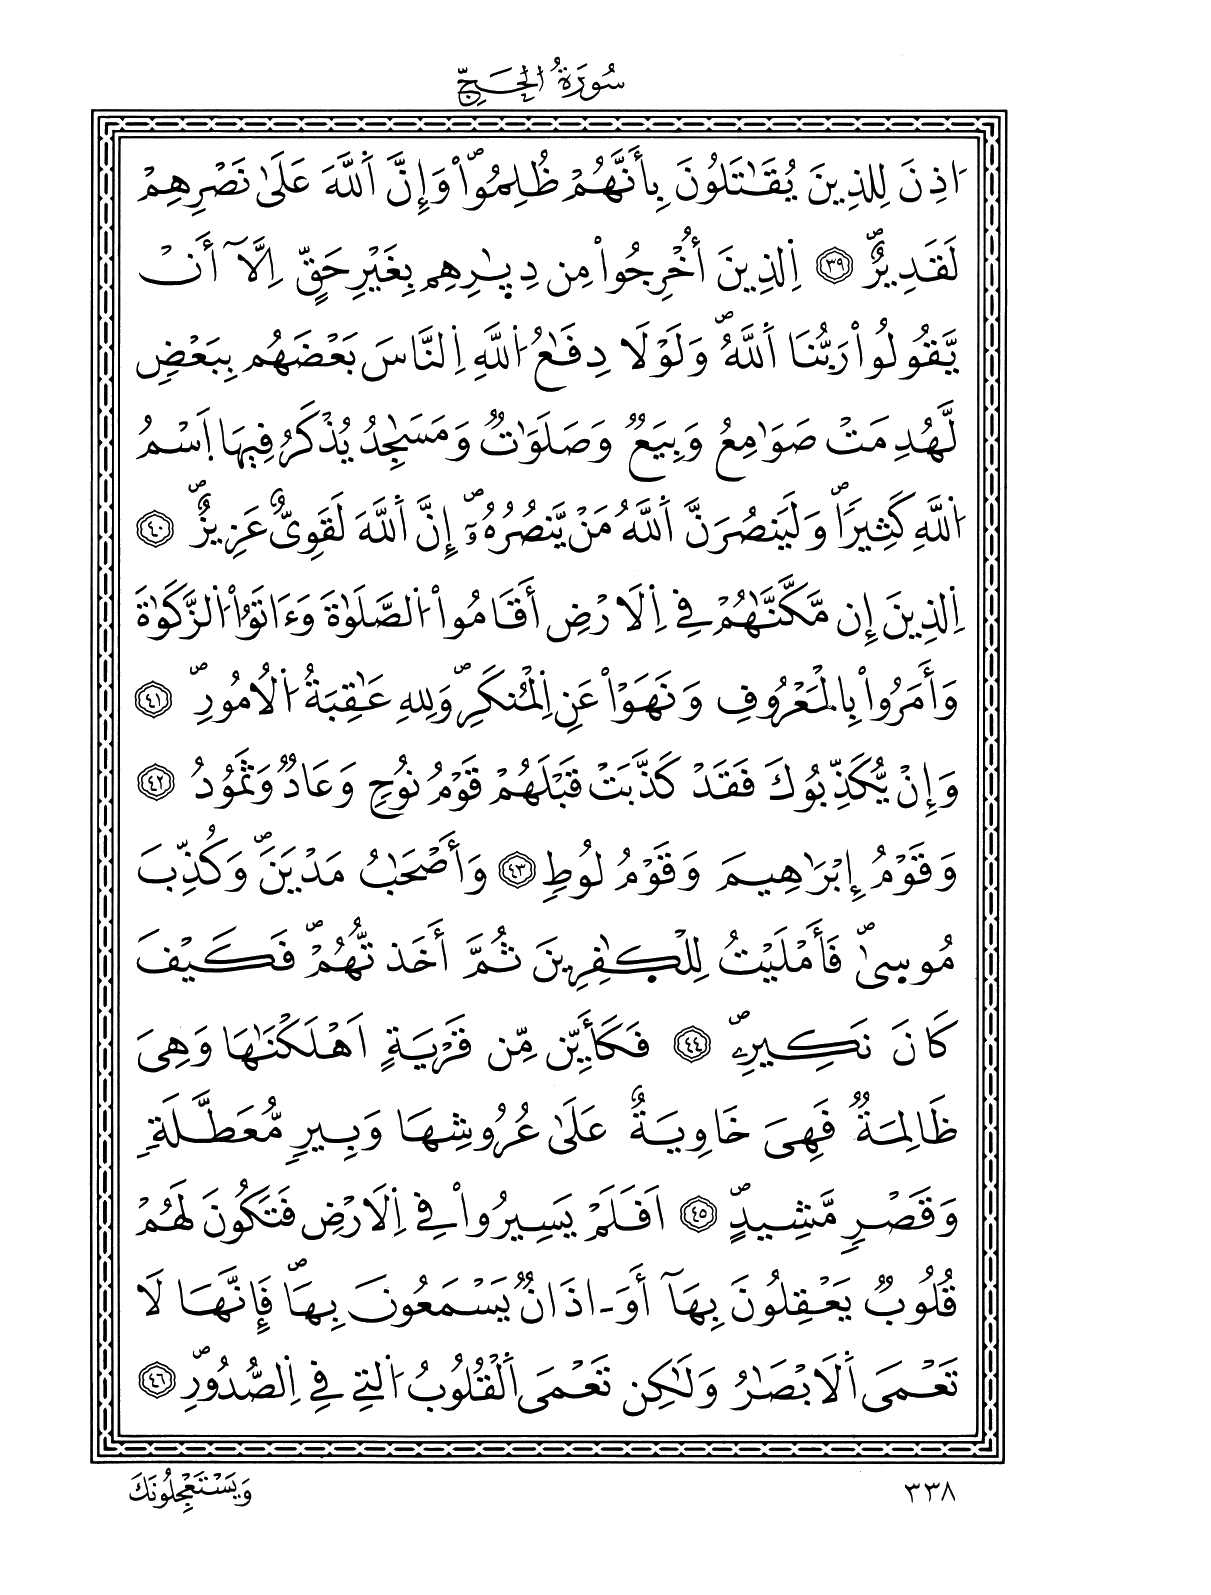 سُورَةُ الْحَجِّ
اُذِنَ لِلذِينَ يُقَٰتَلُونَ بِأَنَّهُمْ ظُلِمُواْۖ وَإِنَّ اَ۬للَّهَ عَلَىٰ نَصْرِهِمْ
لَقَدِيرٌۖ ﴿٣٩﴾ اِ۬لذِينَ أُخْرِجُواْ مِن دِيٰ۪رِهِم بِغَيْرِ حَقٍّ اِلَّآ أَنْ
يَّقُولُواْ رَبُّنَا اَ۬للَّهُۖ وَلَوْلَا دِفَٰعُ اُ۬للَّهِ اِ۬لنَّاسَ بَعْضَهُم بِبَعْضٖ
لَّهُدِمَتْ صَوَٰمِعُ وَبِيَعٞ وَصَلَوَٰتٞ وَمَسَٰجِدُ يُذْكَرُ فِيهَا اَ۪سْمُ
اُ۬للَّهِ كَثِيراٗۖ وَلَيَنصُرَنَّ اَ۬للَّهُ مَنْ يَّنصُرُهُۥٓۖ إِنَّ اَ۬للَّهَ لَقَوِيٌّ عَزِيزٌۖ ﴿٤٠﴾
اِ۬لذِينَ إِن مَّكَّنَّٰهُمْ فِے اِ۬لَارْضِ أَقَامُواْ اُ۬لصَّلَوٰةَ وَءَاتَوُاْ اُ۬لزَّكَوٰةَ
وَأَمَرُواْ بِالْمَعْرُوفِ وَنَهَوْاْ عَنِ اِ۬لْمُنكَرِۖ وَلِلهِ عَٰقِبَةُ اُ۬لُامُورِۖ ﴿٤١﴾
وَإِنْ يُّكَذِّبُوكَ فَقَدْ كَذَّبَتْ قَبْلَهُمْ قَوْمُ نُوحٖ وَعَادٞ وَثَمُودُ ﴿٤٢﴾
وَقَوْمُ إِبْرَٰهِيمَ وَقَوْمُ لُوطٖ ﴿٤٣﴾ وَأَصْحَٰبُ مَدْيَنَۖ وَكُذِّبَ
مُوس۪ىٰۖ فَأَمْلَيْتُ لِلْكٰ۪فِرِينَ ثُمَّ أَخَذتُّهُمْۖ فَكَيْفَ
كَانَ نَكِيرِۦۖ ﴿٤٤﴾ فَكَأَيِّن مِّن قَرْيَةٍ اَهْلَكْنَٰهَا وَهِىَ
ظَالِمَةٞ فَهِىَ خَاوِيَةٌ عَلَىٰ عُرُوشِهَا وَبِيرٖ مُّعَطَّلَةٖ
وَقَصْرٖ مَّشِيدٍۖ ﴿٤٥﴾ اَفَلَمْ يَسِيرُواْ فِے اِ۬لَارْضِ فَتَكُونَ لَهُمْ
قُلُوبٞ يَعْقِلُونَ بِهَآ أَوَ اٰذَانٞ يَسْمَعُونَ بِهَاۖ فَإِنَّهَا لَا
تَعْمَى اَ۬لَابْصَٰرُ وَلَٰكِن تَعْمَى اَ۬لْقُلُوبُ اُ۬لتِے فِے اِ۬لصُّدُورِۖ ﴿٤٦﴾
وَيَسْتَعْجِلُونَكَ
٣٣٨